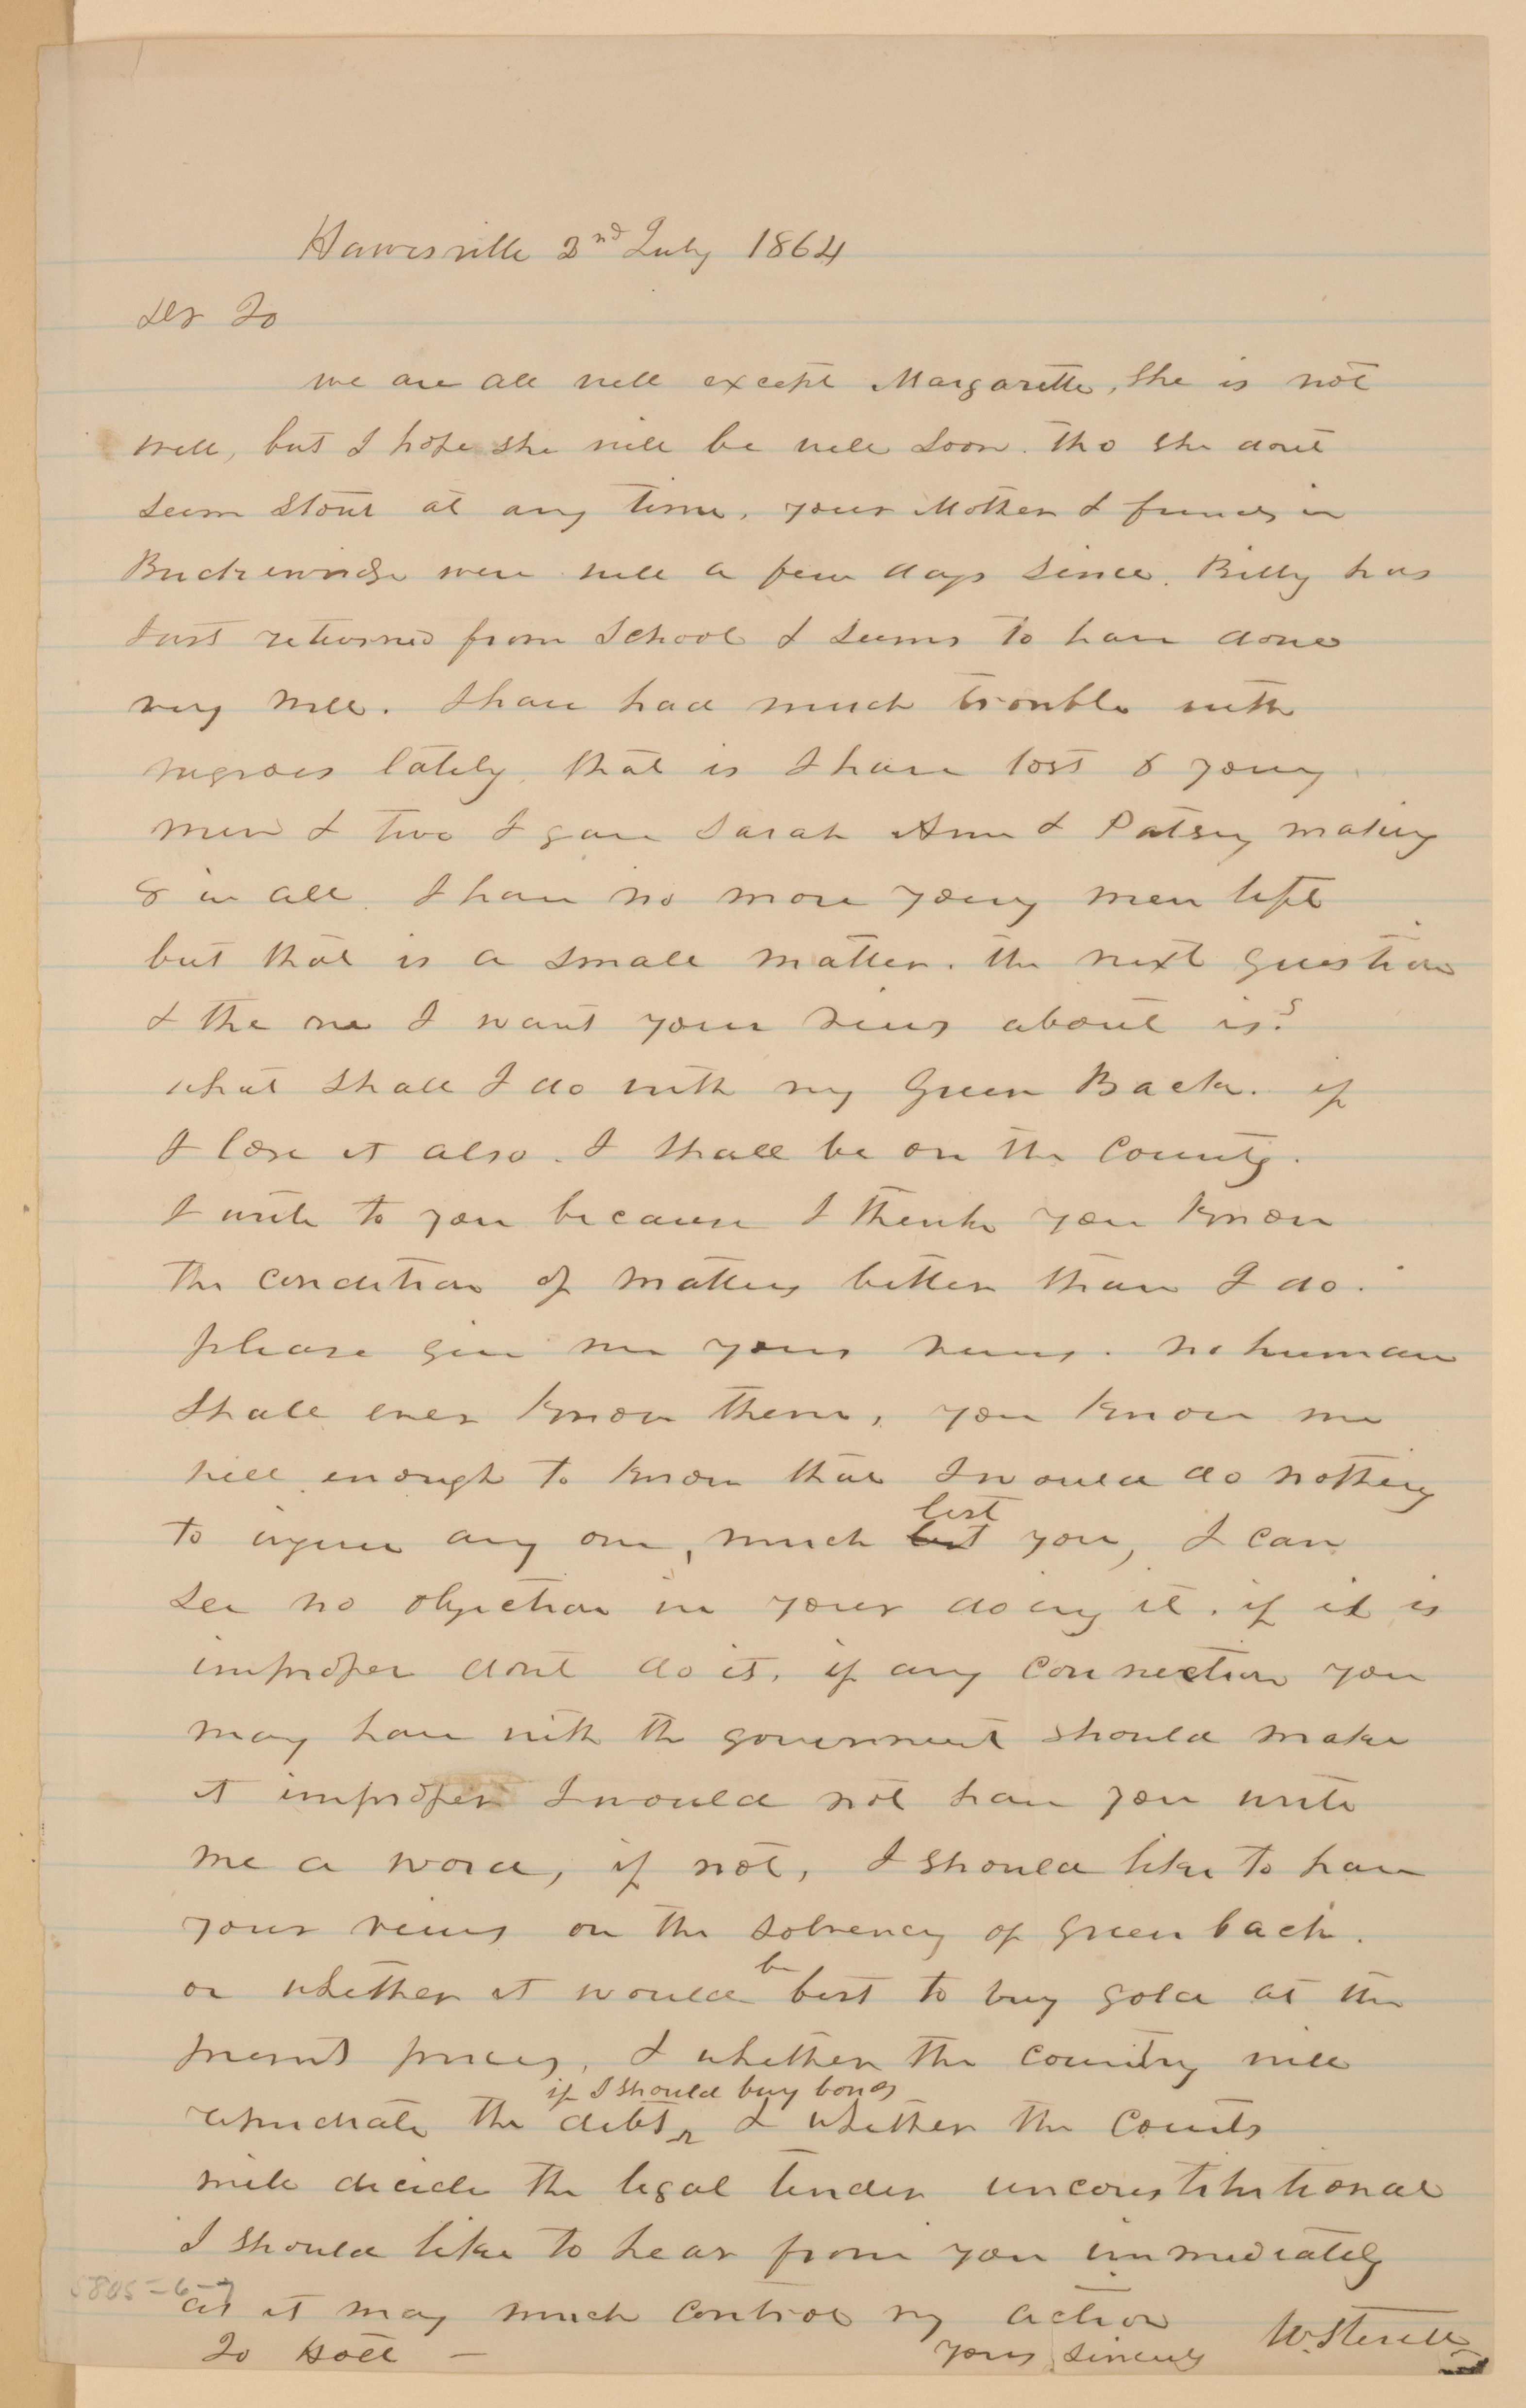 Hawesville 2nd July 1864
Dr Jo
we are all well except Margarette, she is not
well, but I hope she will be well soon. tho she dont
seem stout at any time. your Mother & friends in
Breckenridge were well a few days since. Billy has
Just returned from School & seems to have done
very well. I have had much trouble with
negroes lately. that is I have lost 6 young
men & two I gave Sarah Ann & Patsey making
8 in all. I have no more young men left
but that is a small matter. the next question
& the one I want your views about is?
what shall I do with my Green Back. if
I lose it also. I shall be on the County.
I write to you because I think you know
the condition of matters better than I do.
please give me your views. no human
shall ever know them, you know me
well enough to know that I would do nothing
to injure any one, much lest you, I can
see no objection in your doing it. if it is
improper dont do it. if any connection you
may have with the government should make
it improper I would not have you write
me a word, if not, I should like to have
your views on the solvency of green back.
or whether it would be best to buy gold at the
present prices, & whether the country will
repudiate the debt if I should buy bonds & whether the Courts
will decide the legal tender unconstitutional
I should like to hear from you immediately
as it may much control my action
Jo Holt — yours sincerely W. Sterett
5805-6-7